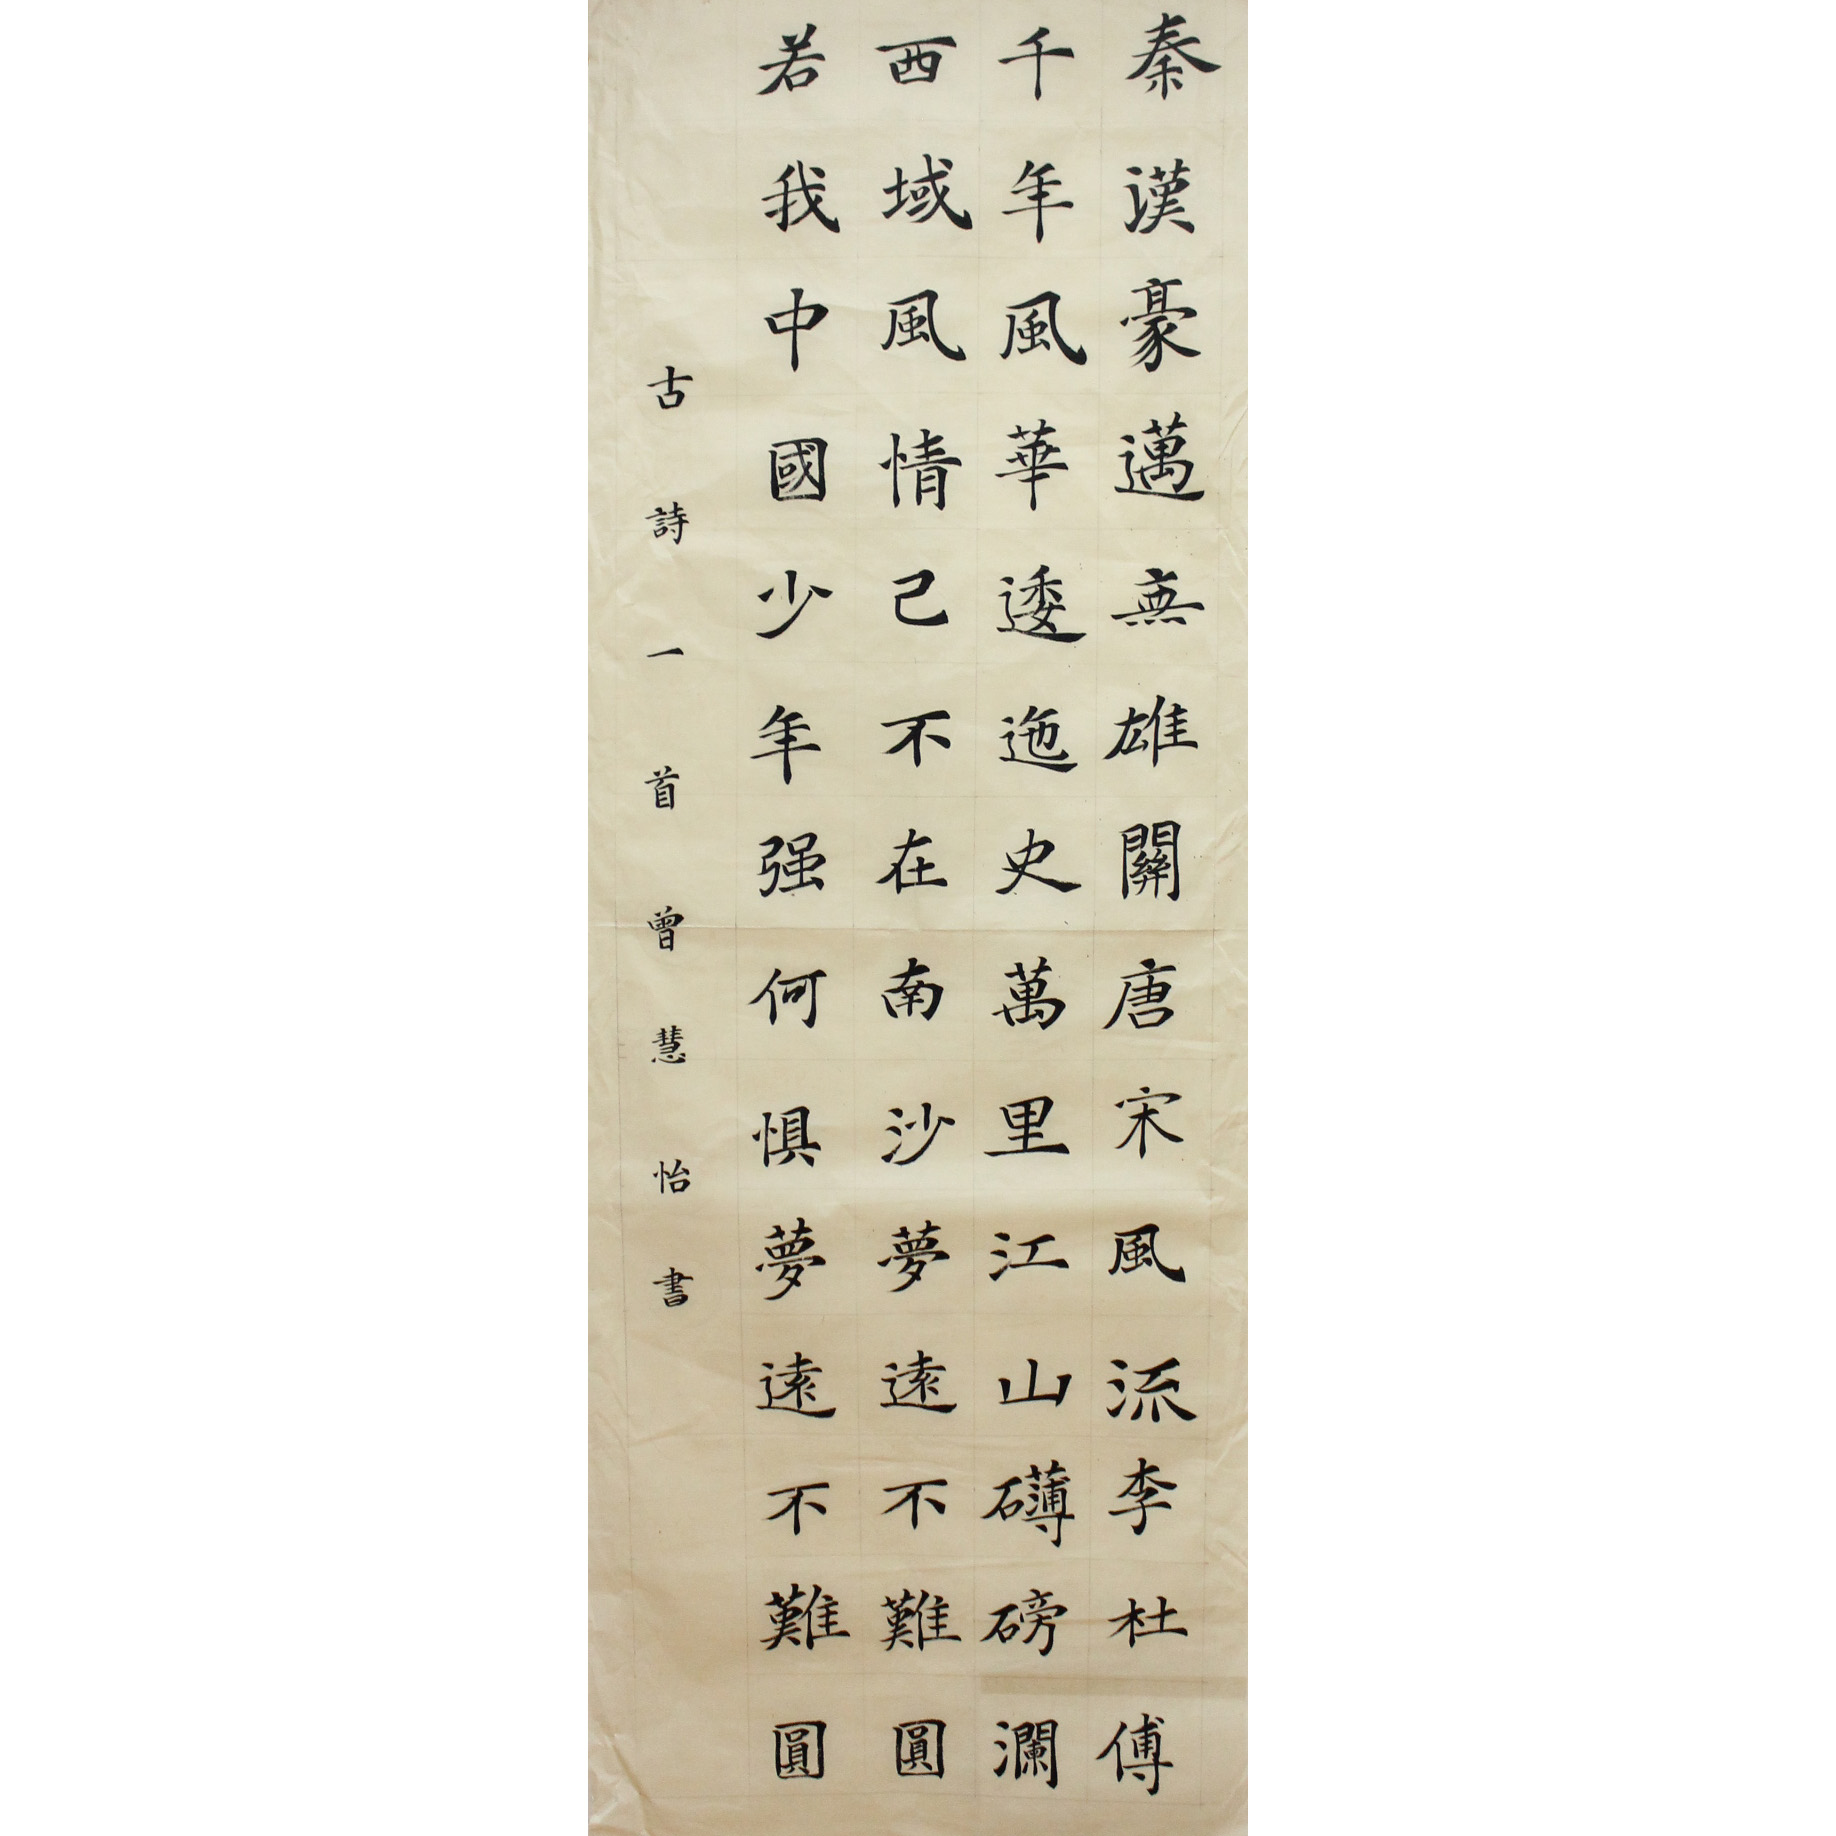 秦漢豪邁無雄關唐宋風流李杜傳
千年風華逶迤史萬里江山礴磅瀾
西域風情己不在南沙夢遠不難圓
若我中國少年强何惧夢遠不難圓
古詩一首曾慧怡書